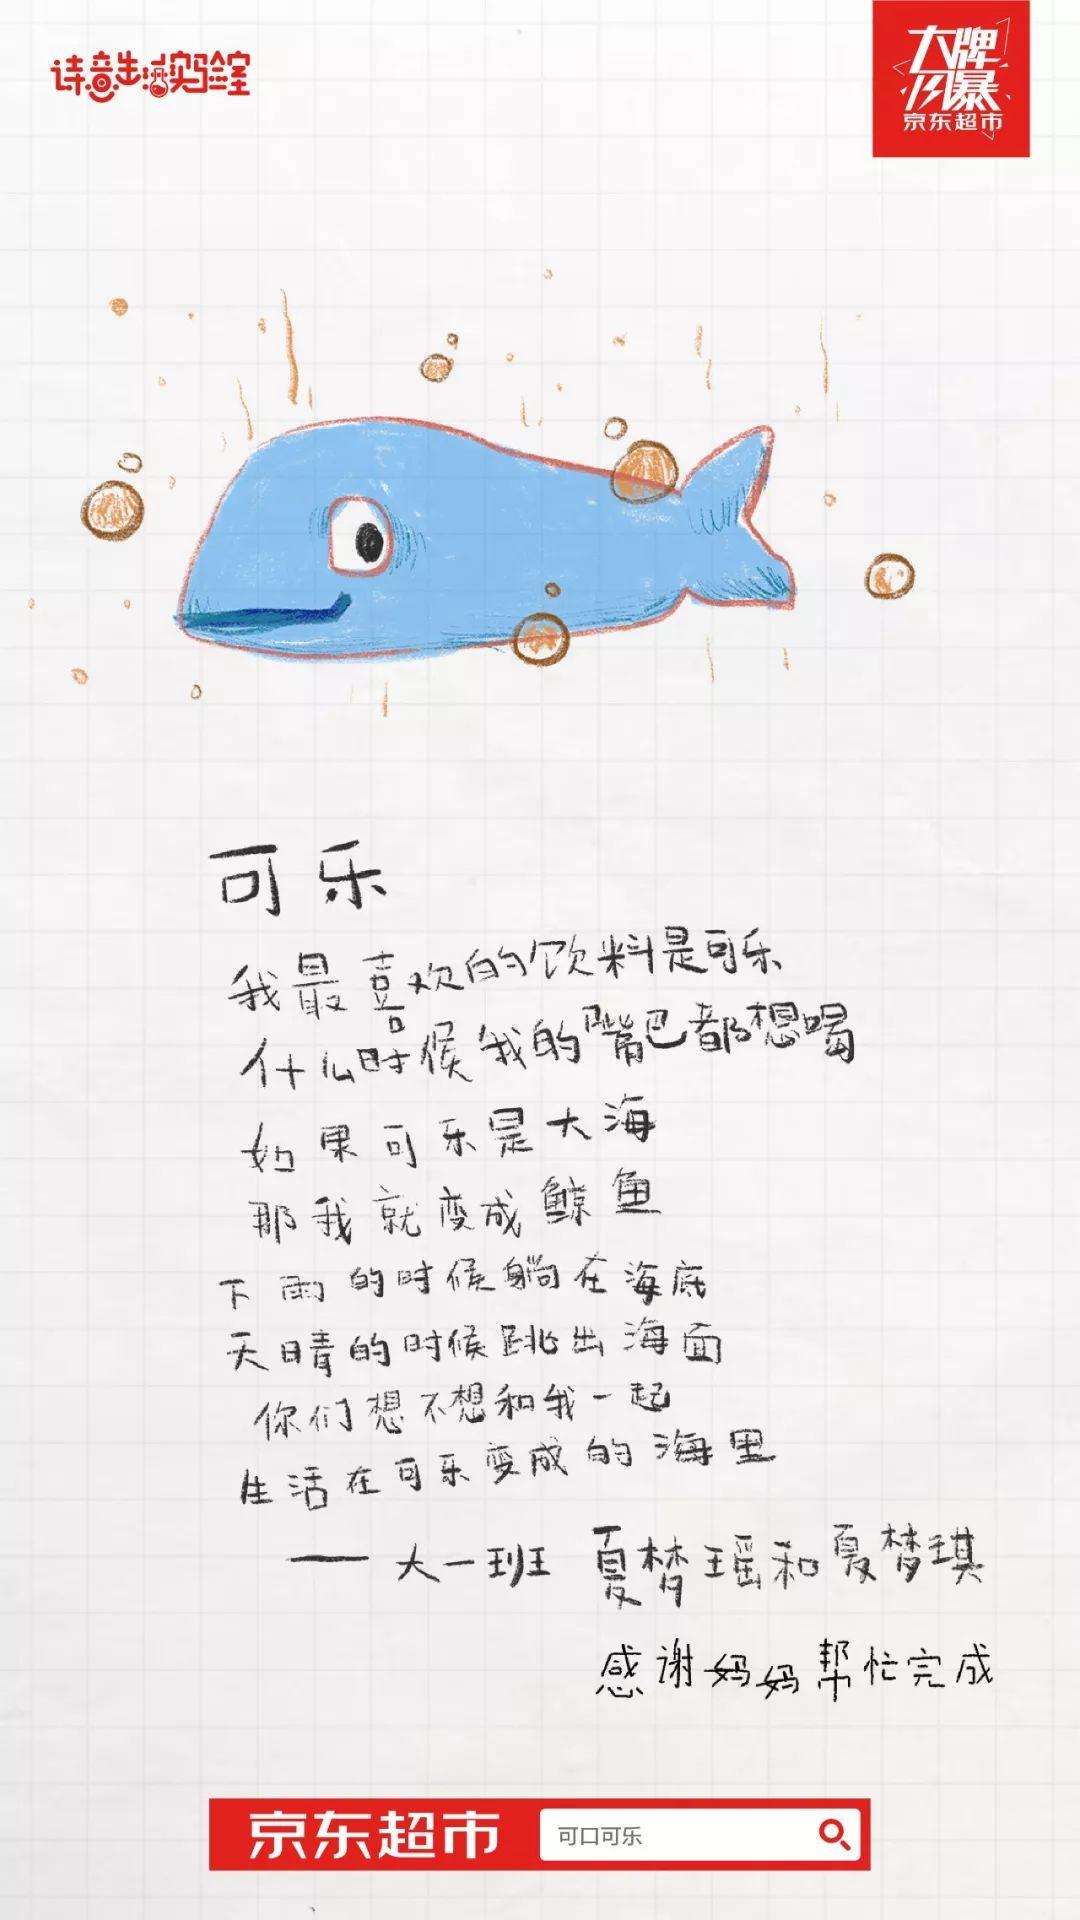 诗意生活实验室
大牌
风暴
京东超市
可乐
我最喜欢的饮料是可乐
什么时候我的嘴巴都想喝
如果可乐是大海
那我就变成鲸鱼
下雨的时候躺在海底
天晴的时候跳出海面
你们想不想和我一起
生活在可乐变成的海里
——大一班 夏梦瑶和夏梦琪
感谢妈妈帮忙完成
京东超市 可口可乐